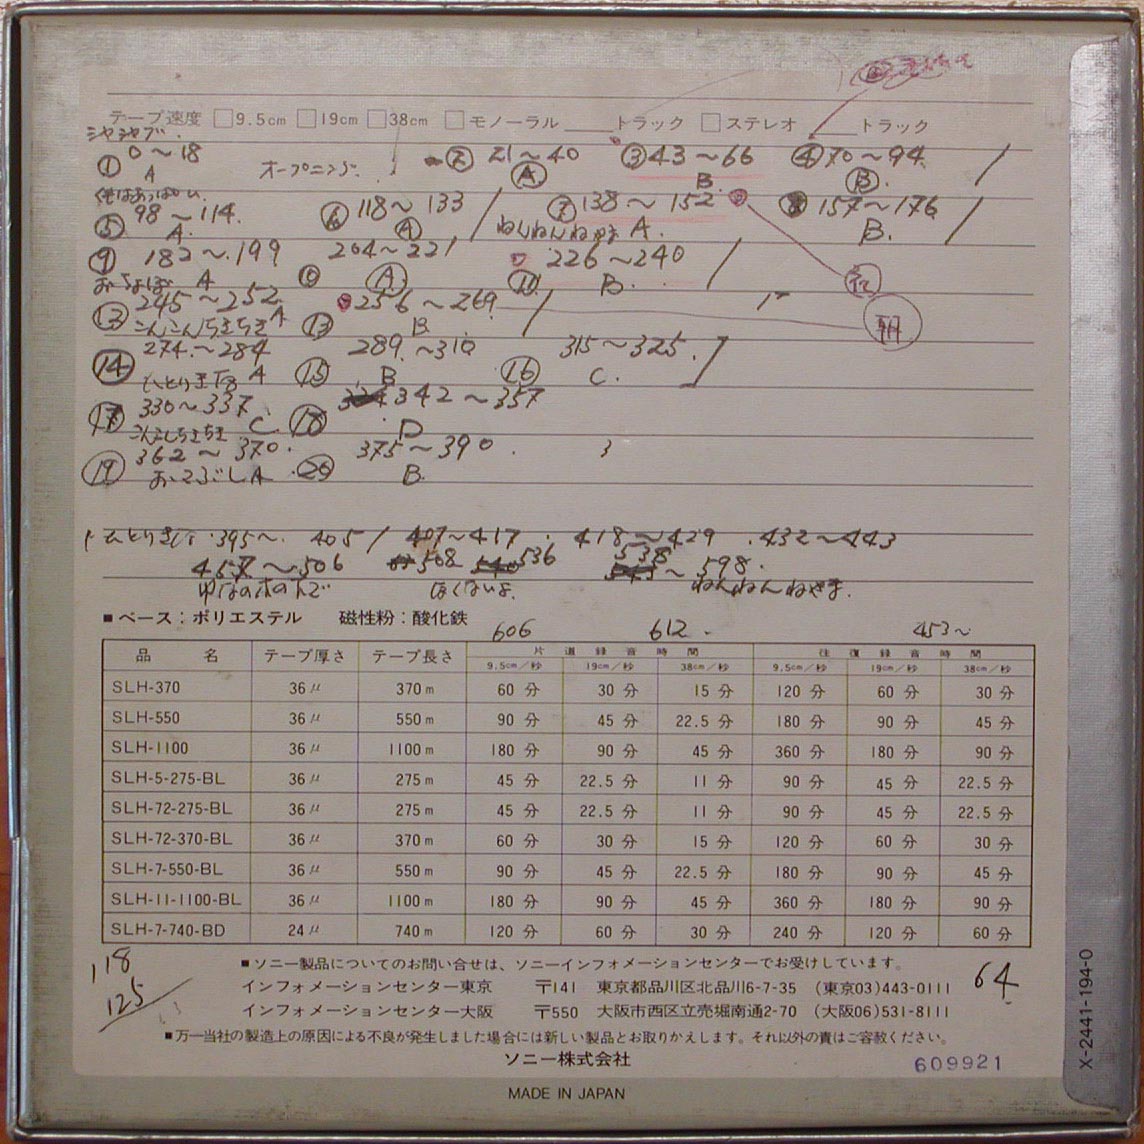 テープ速度 □9.5cm □19cm □38cm □モノーラル ___トラック □ステレオ ___トラック
シャシャブ.
① 0～18 ② 21～40 ③ 43～66 ④ 70～94
A オープニング. A B. B.
⑤ 98～114. ⑥ 118～133 ⑦ 138～152 ⑧ 157～176
A. A ねんねんねやま A. B.
⑨ 182～199 ⑩ 204～221 ⑪ 226～240
A A B.
⑫ 245～252 ⑬ 256～269
こんこんちきちき A B 朝
⑭ 274.～284 ⑮ 289.～310 ⑯ 315～325.
A B C.
⑰ 330～337 ⑱ 342～357
C. D
⑲ 362～370. ⑳ 375～390.
A B.
395～. 405 / 407～417. 418～429. 432～443
457～506 508 536 538～598.
ねんねんねやま.
■ベース：ポリエステル 磁性粉：酸化鉄
606 612. 453～
品名 テープ厚さ テープ長さ 片道録音時間 往復録音時間
9.5cm/秒 19cm/秒 38cm/秒 9.5cm/秒 19cm/秒 38cm/秒
SLH-370 36μ 370m 60分 30分 15分 120分 60分 30分
SLH-550 36μ 550m 90分 45分 22.5分 180分 90分 45分
SLH-1100 36μ 1100m 180分 90分 45分 360分 180分 90分
SLH-5-275-BL 36μ 275m 45分 22.5分 11分 90分 45分 22.5分
SLH-72-275-BL 36μ 275m 45分 22.5分 11分 90分 45分 22.5分
SLH-72-370-BL 36μ 370m 60分 30分 15分 120分 60分 30分
SLH-7-550-BL 36μ 550m 90分 45分 22.5分 180分 90分 45分
SLH-11-1100-BL 36μ 1100m 180分 90分 45分 360分 180分 90分
SLH-7-740-BD 24μ 740m 120分 60分 30分 240分 120分 60分
118
125
■ソニー製品についてのお問い合せは、ソニーインフォメーションセンターでお受けしています。
インフォメーションセンター東京 〒141 東京都品川区北品川6-7-35 (東京03)443-0111
64
インフォメーションセンター大阪 〒550 大阪市西区立売堀南通2-70 (大阪06)531-8111
■万一当社の製造上の原因による不良が発生しました場合には新しい製品とお取りかえします。それ以外の責はご容赦ください。
ソニー株式会社
609921
MADE IN JAPAN
X-2441-194-0